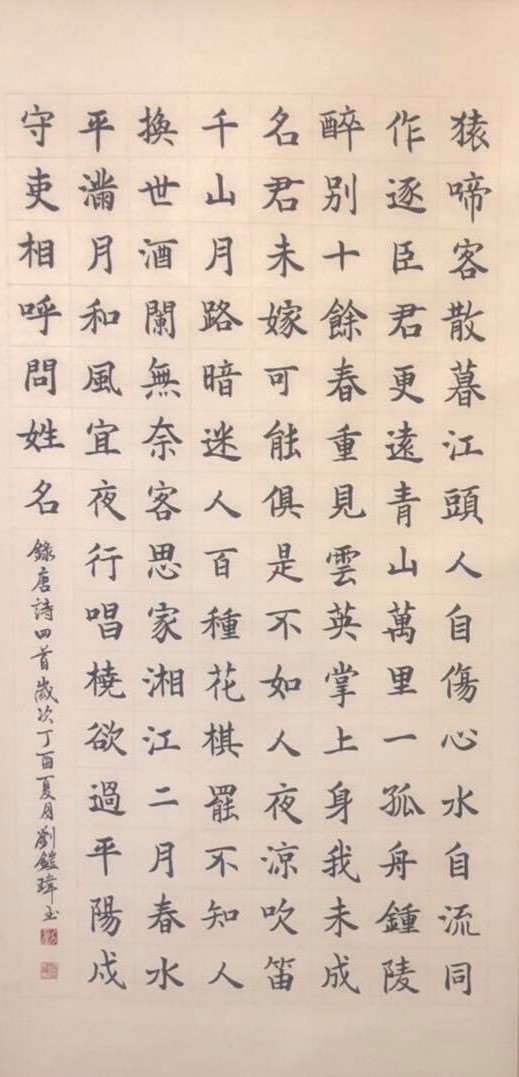 猿啼客散暮江頭人自傷心水自流同
作逐臣君更遠青山萬里一孤舟鍾陵
醉別十餘春重見雲英掌上身我未成
名君未嫁可能俱是不如人夜涼吹笛
千山月路暗迷人百種花棋罷不知人
換世酒闌無奈客思家湘江二月春水
平滿月和風宜夜行唱橈欲過平陽戍
守吏相呼問姓名
錄唐詩四首歲次丁酉夏月劉鎧瑋書